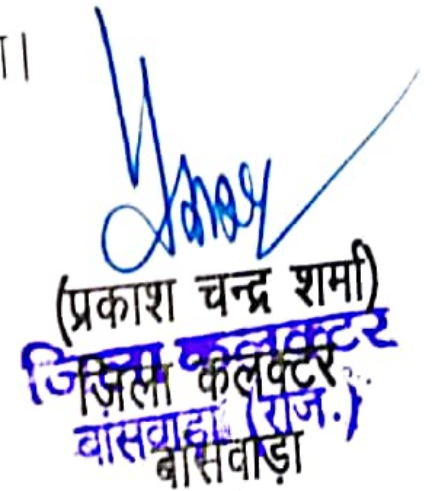 (प्रकाश चन्द्र शर्मा)
जिला कलक्टर
जिला कलक्टर
बांसवाड़ा (राज.)
बांसवाड़ा